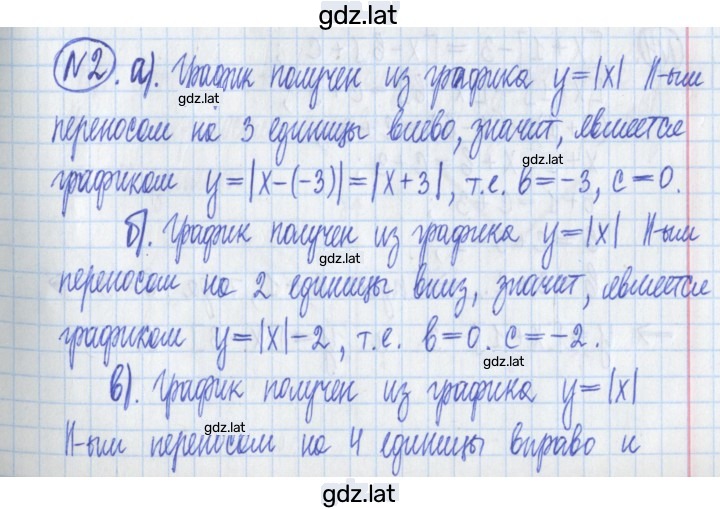 gdz.lat
№2. а). График получен из графика y=|x| II-ым
gdz.lat
переносом на 3 единицы влево, значит, является
gdz.lat
графиком y=|x-(-3)|=|x+3|, т.е. в=-3, с=0.
б). График получен из графика y=|x| II-ым
gdz.lat
переносом на 2 единицы вниз, значит, является
графиком y=|x|-2, т.е. в=0. с=-2.
gdz.lat
в). График получен из графика y=|x|
gdz.lat
II-ым переносом на 4 единицы вправо и
gdz.lat